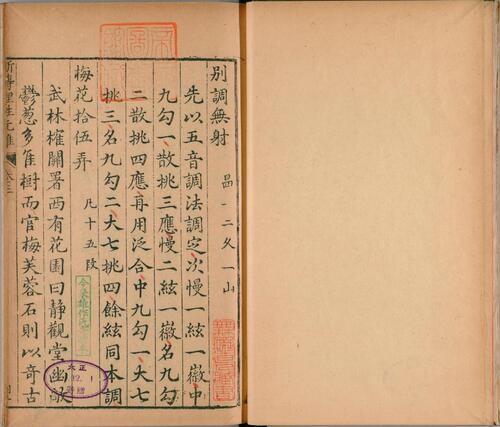 別調無射 品一二久一山
先以五音調法調定次慢一絃一徽中
九勾一散挑三應慢二絃一徽名九勾
二散挑四應再用泛合中九勾一大七
挑三名九勾二大七挑四餘絃同本調
梅花拾伍弄 凡十五段
武林榷關署西有花園曰靜觀堂幽敞
鬱蔥多隹樹而官梅芙蓉石則以奇古
大正